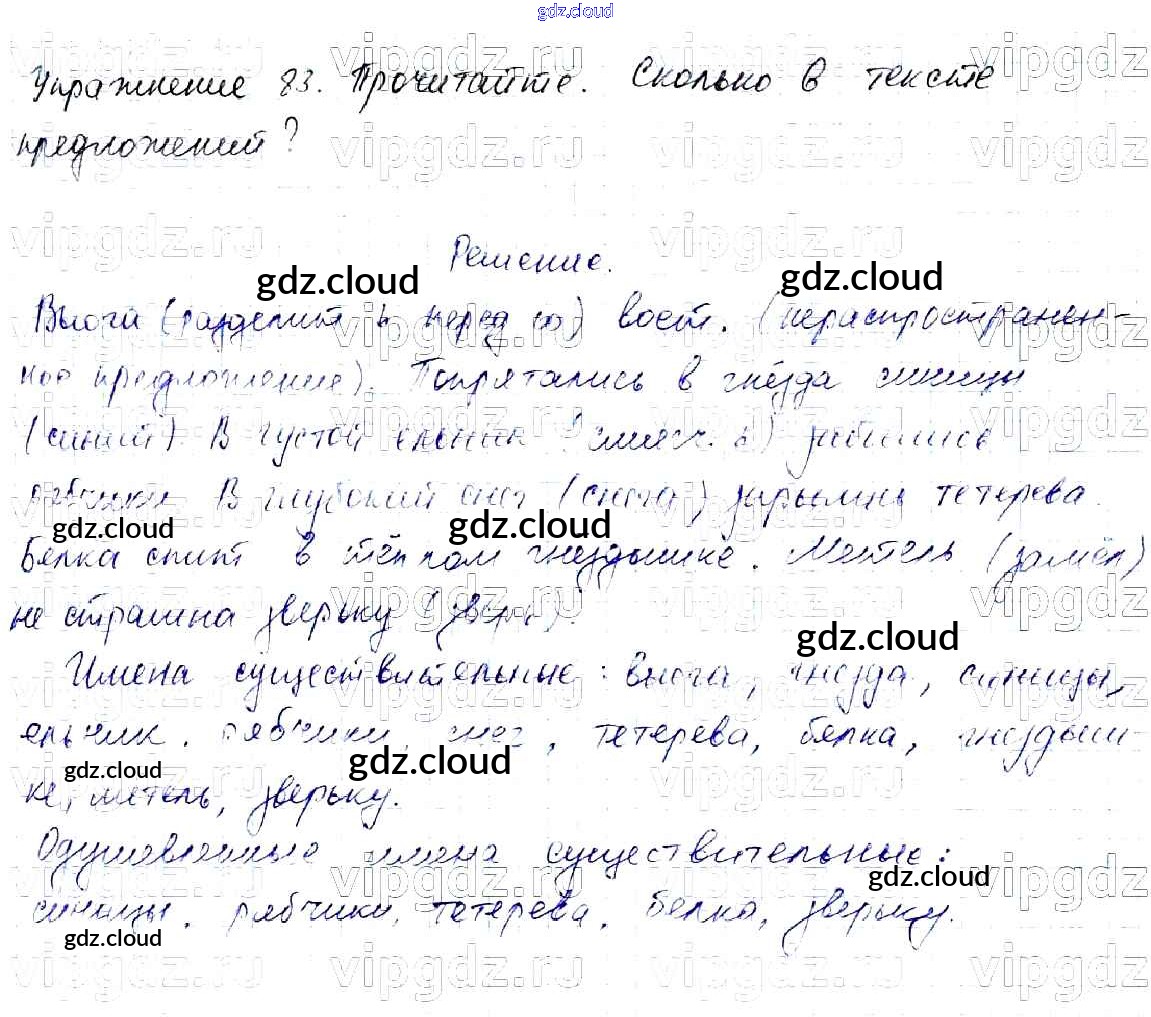 gdz.cloud
Упражнение 83. Прочитайте. Сколько в тексте
предложений?
Решение.
gdz.cloud gdz.cloud
Вьюга (разделит. ь перед ю) воет. (нераспространен-
ное предложение). Попрятались в гнёзда синицы
(синий). В густой ельник забились
рябчики. В глубокий снег (снега) зарылись тетерева.
gdz.cloud gdz.cloud
Белка спит в тёплом гнездышке. Метель (замёл)
не страшна зверьку
gdz.cloud
Имена существительные: вьюга, гнезда, синицы,
ельник, рябчики, снег, тетерева, белка, гнездыш-
gdz.cloud gdz.cloud
ке, метель, зверьку.
Одушевленные имена существительные:
gdz.cloud
синицы, рябчики, тетерева, белка, зверьку.
gdz.cloud
vipgdz.ru